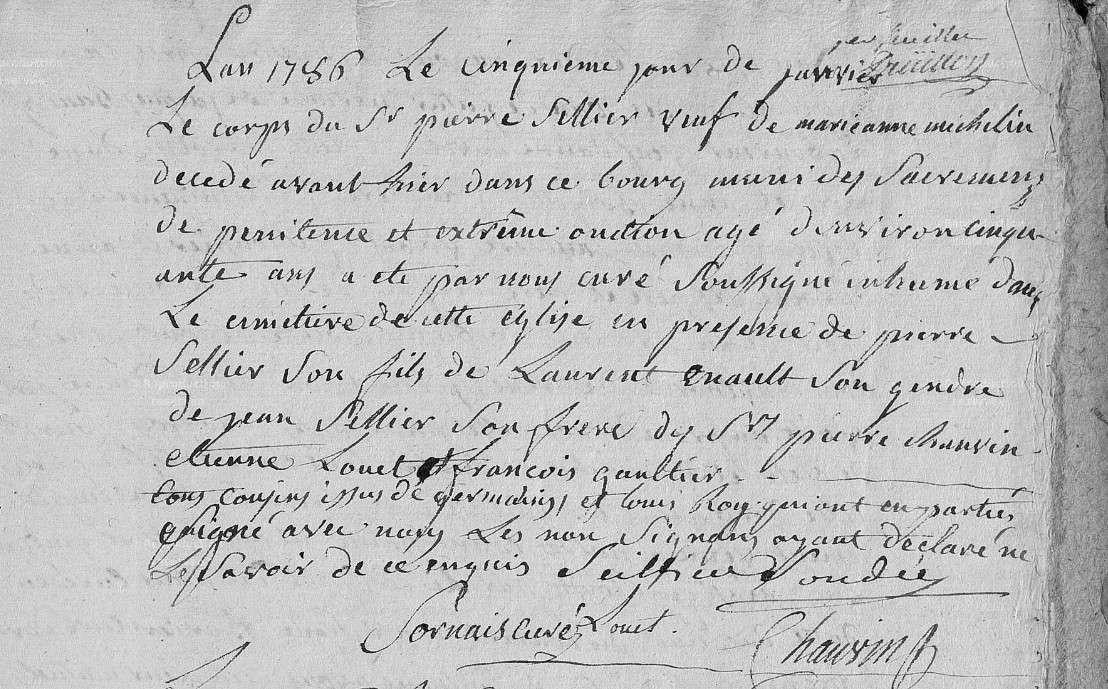 premier feuillet
L'an 1786 Le cinquieme jour de janvier
Le corps du Sr pierre Sellier veuf de marie anne michelin
decedé avant hier dans ce bourg muni des Sacremens
de penitence et extrême onction agé denviron cinqu-
ante ans a eté par nous curé Soussigné inhumé dans
Le cimetiere de cette eglise en presence de pierre
Sellier Son fils de Laurent enault Son gendre
de jean Sellier Son frere des Srs pierre chauvin
etienne Louet et francois gaultier
tous cousins issus de germains et louis Roy qui ont en partie
Signé avec nous Les non Signans ayant déclaré ne
Le Savoir de ce enquis Seillier
Sornais curé Louet. Chauvin